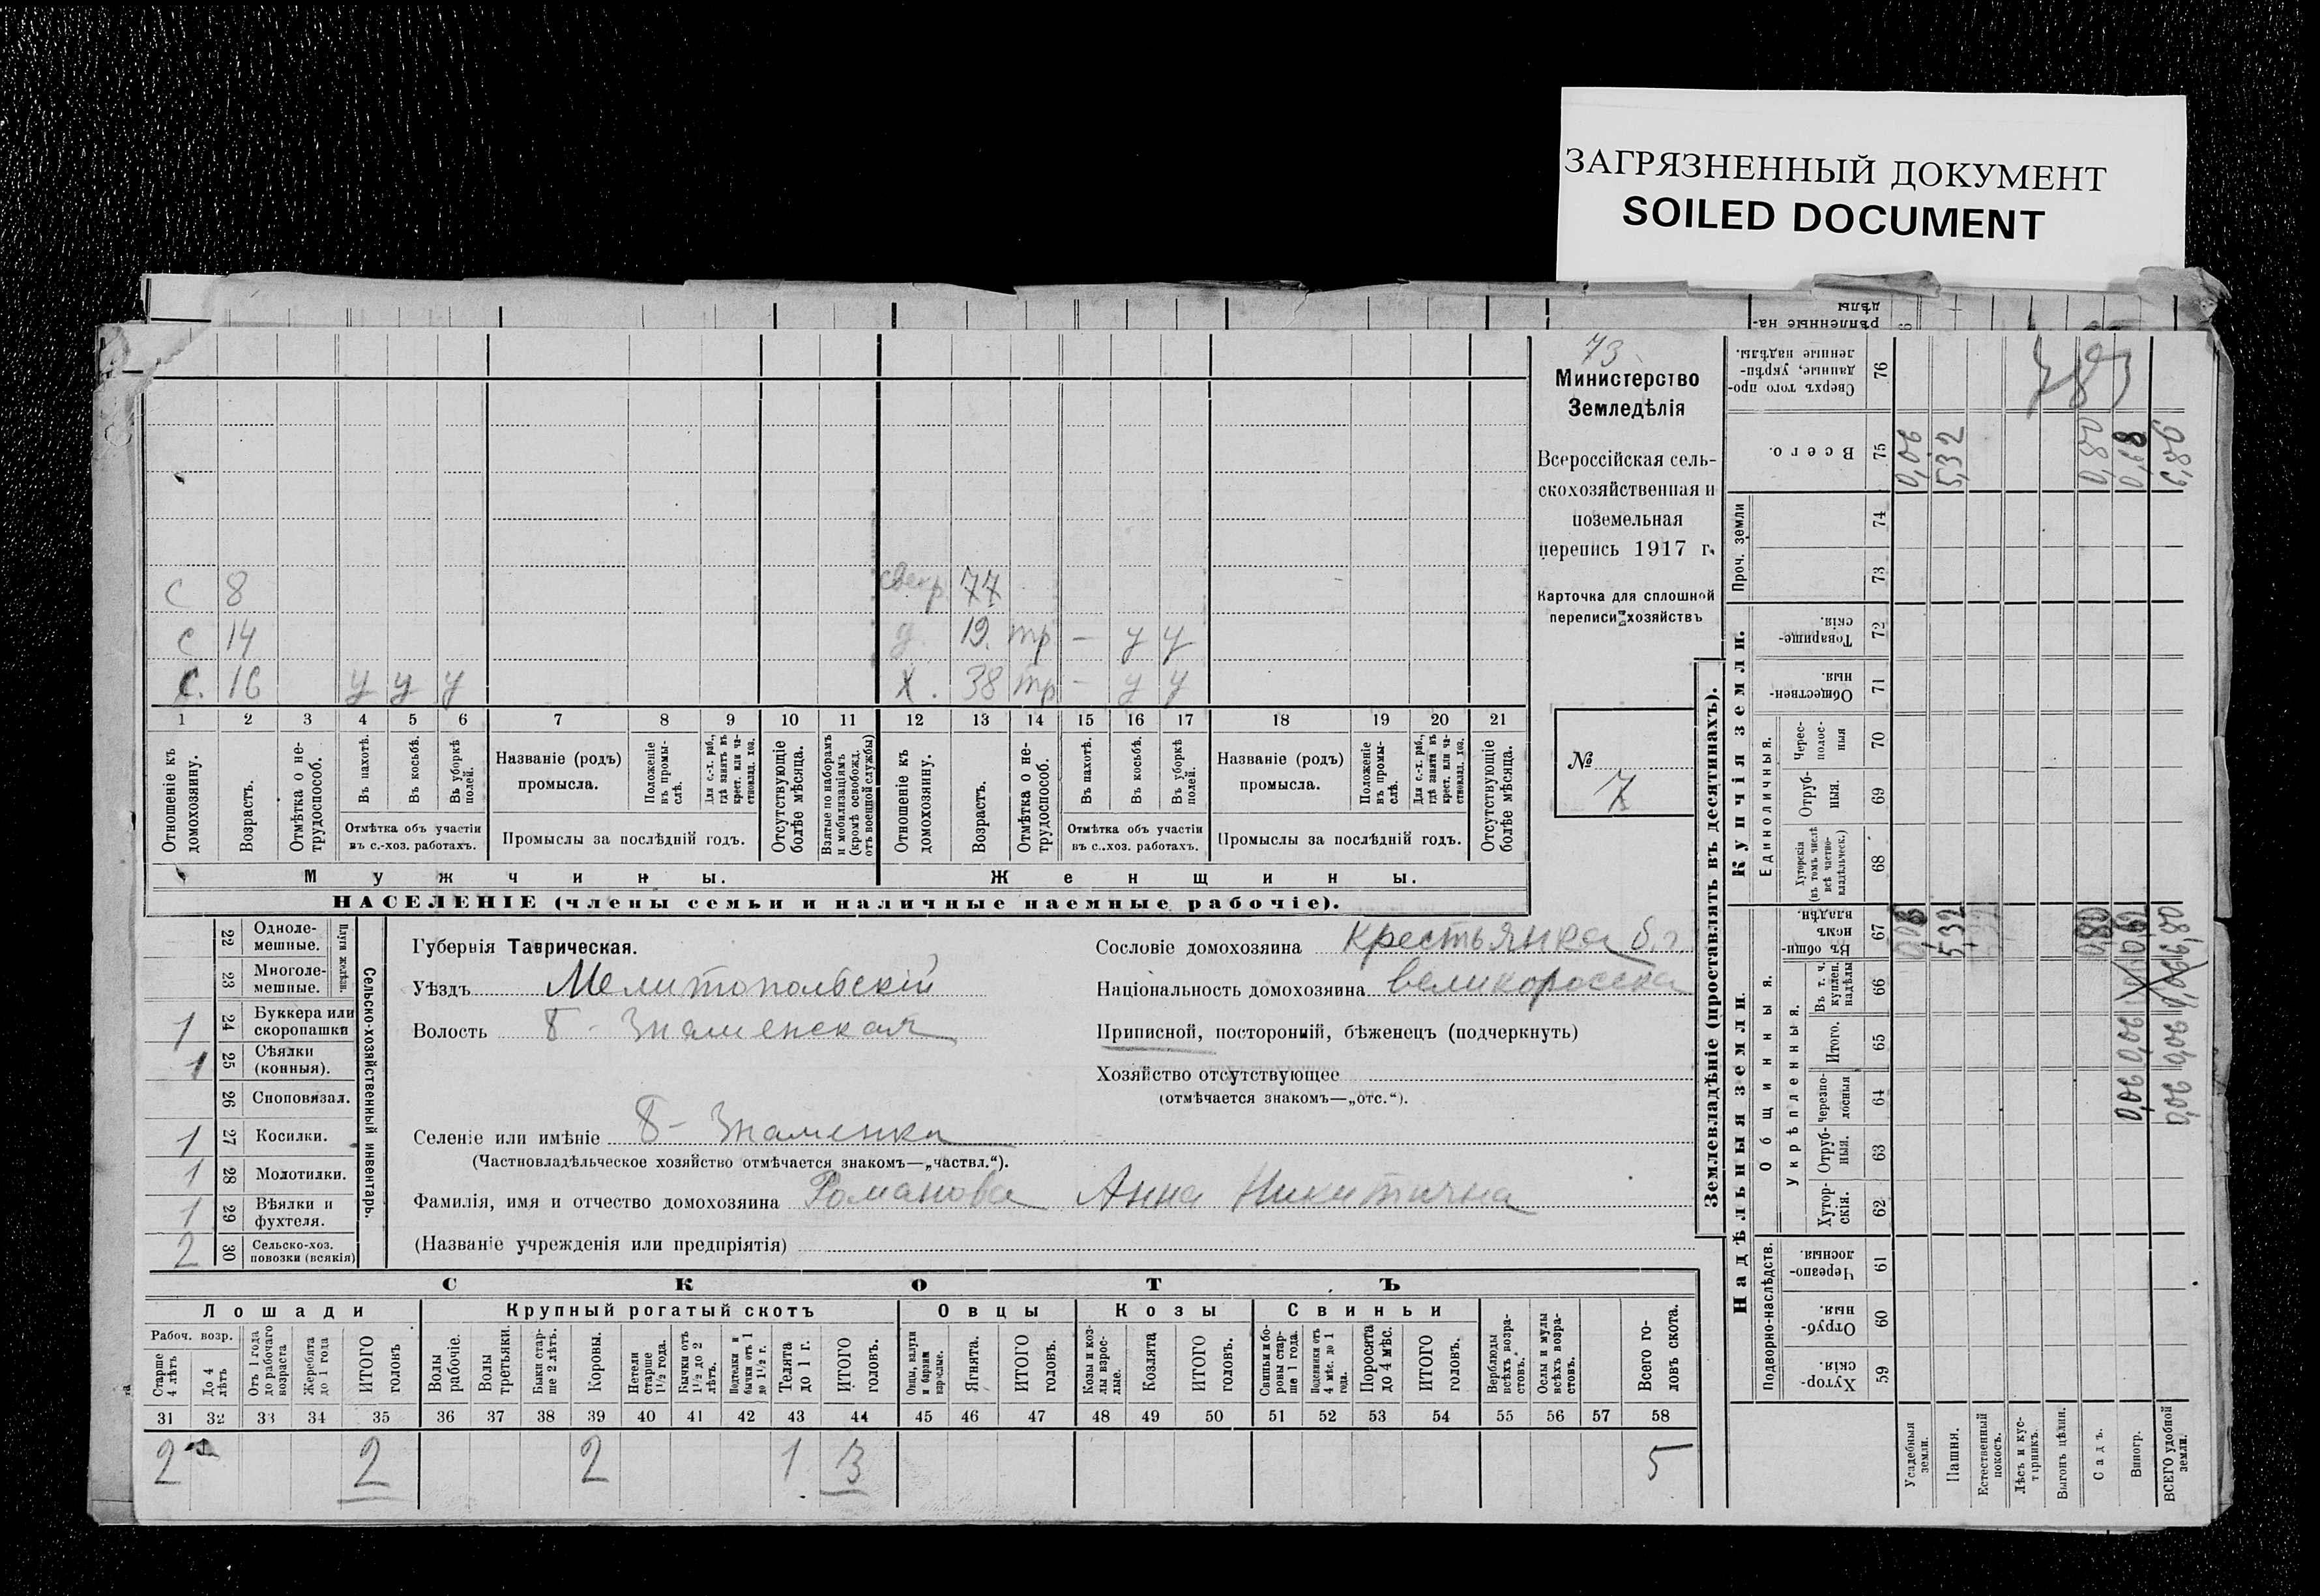 ЗАГРЯЗНЕННЫЙ ДОКУМЕНТ
SOILED DOCUMENT
73
Министерство
Земледѣлія
Всероссійская сель-
скохозяйственная и
поземельная
перепись 1917 г.
Карточка для сплошной
переписи хозяйствъ
№
7
с 8 свекр 77
с 14 д. 19 тр - у у
с. 16 у у у х. 38 тр - у у
1 2 3 4 5 6 7 8 9 10 11 12 13 14 15 16 17 18 19 20 21
Отношеніе къ домохозяину.
Возрастъ.
Отмѣтка о не-трудоспособ.
Въ пахотѣ.
Въ косьбѣ.
Въ уборкѣ полей.
Отмѣтка объ участіи
въ с.-хоз. работахъ.
Названіе (родъ)
промысла.
Положеніе въ промы-слѣ.
Для с.-х. раб., гдѣ занятъ въ крест. или ча-стновлад. хоз.
Промыслы за послѣдній годъ.
Отсутствующіе болѣе мѣсяца.
Взятые по наборамъ и мобилизаціямъ (кромѣ освобожд. отъ военной службы)
Отношеніе къ домохозяину.
Возрастъ.
Отмѣтка о не-трудоспособ.
Въ пахотѣ.
Въ косьбѣ.
Въ уборкѣ полей.
Отмѣтка объ участіи
въ с.-хоз. работахъ.
Названіе (родъ)
промысла.
Положеніе въ промы-слѣ.
Для с.-х. раб., гдѣ занята въ крест. или ча-стновлад. хоз.
Промыслы за послѣдній годъ.
Отсутствующіе болѣе мѣсяца.
Мужчины. Женщины.
НАСЕЛЕНІЕ (члены семьи и наличные наемные рабочіе).
Сельско-хозяйственный инвентарь.
Плуги желѣзн.
22 Одноле-мешные.
23 Многоле-мешные.
1 24 Буккера или скоропашки
1 25 Сѣялки (конныя).
26 Сноповязал.
1 27 Косилки.
1 28 Молотилки.
1 29 Вѣялки и фухтеля.
2 30 Сельско-хоз. повозки (всякія)
Губернія Таврическая.
Уѣздъ Мелитопольскій
Волость Б-Знаменская
Сословіе домохозяина Крестьянка б.г
Національность домохозяина великоросска
Приписной, посторонній, бѣженецъ (подчеркнуть)
Хозяйство отсутствующее
(отмѣчается знакомъ—„отс.“).
Селеніе или имѣніе Б-Знаменка
(Частновладѣльческое хозяйство отмѣчается знакомъ—„частвл.“).
Фамилія, имя и отчество домохозяина Романова Анна Никитична
(Названіе учрежденія или предпріятія)
СКОТЪ
Лошади Крупный рогатый скотъ Овцы Козы Свиньи
Рабоч. возр.
Старше 4 лѣтъ
До 4 лѣтъ
Отъ 1 года до рабочаго возраста
Жеребята до 1 года
ИТОГО головъ
Волы рабочіе.
Волы третьяки.
Быки стар-ше 2 лѣтъ.
Коровы.
Нетели старше 1½ года.
Бычки отъ 1½ до 2 лѣтъ.
Подтелки и бычки отъ 1 до 1½ г.
Телята до 1 г.
ИТОГО головъ.
Овцы, валухи и бараны взрослые.
Ягнята.
ИТОГО головъ.
Козы и коз-лы взрос-лые.
Козлята
ИТОГО головъ.
Свиньи и бо-ровы стар-ше 1 года.
Подсвинки отъ 4 мѣс. до 1 года.
Поросята до 4 мѣс.
ИТОГО головъ.
Верблюды всѣхъ возра-стовъ.
Ослы и мулы всѣхъ возра-стовъ.
Всего го-ловъ скота.
31 32 33 34 35 36 37 38 39 40 41 42 43 44 45 46 47 48 49 50 51 52 53 54 55 56 57 58
2 2 2 1 3 5
Землевладѣніе (проставлять въ десятинахъ).
Надѣльныя земли.
Купчія земли.
Проч. земли
Подворно-наслѣдств.
Общинныя.
Укрѣпленныя.
Единоличныя.
Сверхъ того про-данные, укрѣп-ленные надѣлы. 76
Всего. 75
74
73
Товарище-скія. 72
Обществен-ныя. 71
Черес-полос-ныя 70
Отруб-ныя. 69
Хуторскія (въ томъ числѣ всѣ частно-владѣльческ.) 68
Въ общи-номъ владѣн. 67
Въ т. ч. куплен. надѣлы 66
Итого. 65
Черезпо-лосныя 64
Отруб-ныя. 63
Хутор-скія. 62
Черезпо-лосныя. 61
Отруб-ныя. 60
Хутор-скія 59
Усадебныя земли.
Пашня.
Естественный покосъ.
Лѣсъ и кус-тарникъ.
Выгонъ цѣлин.
Садъ.
Виногр.
ВСЕГО удобной земли.
783
0,06 5,32 0,80 0,68 6,80
5,32 0,80 6,80
0,06 0,06
0,06 0,06